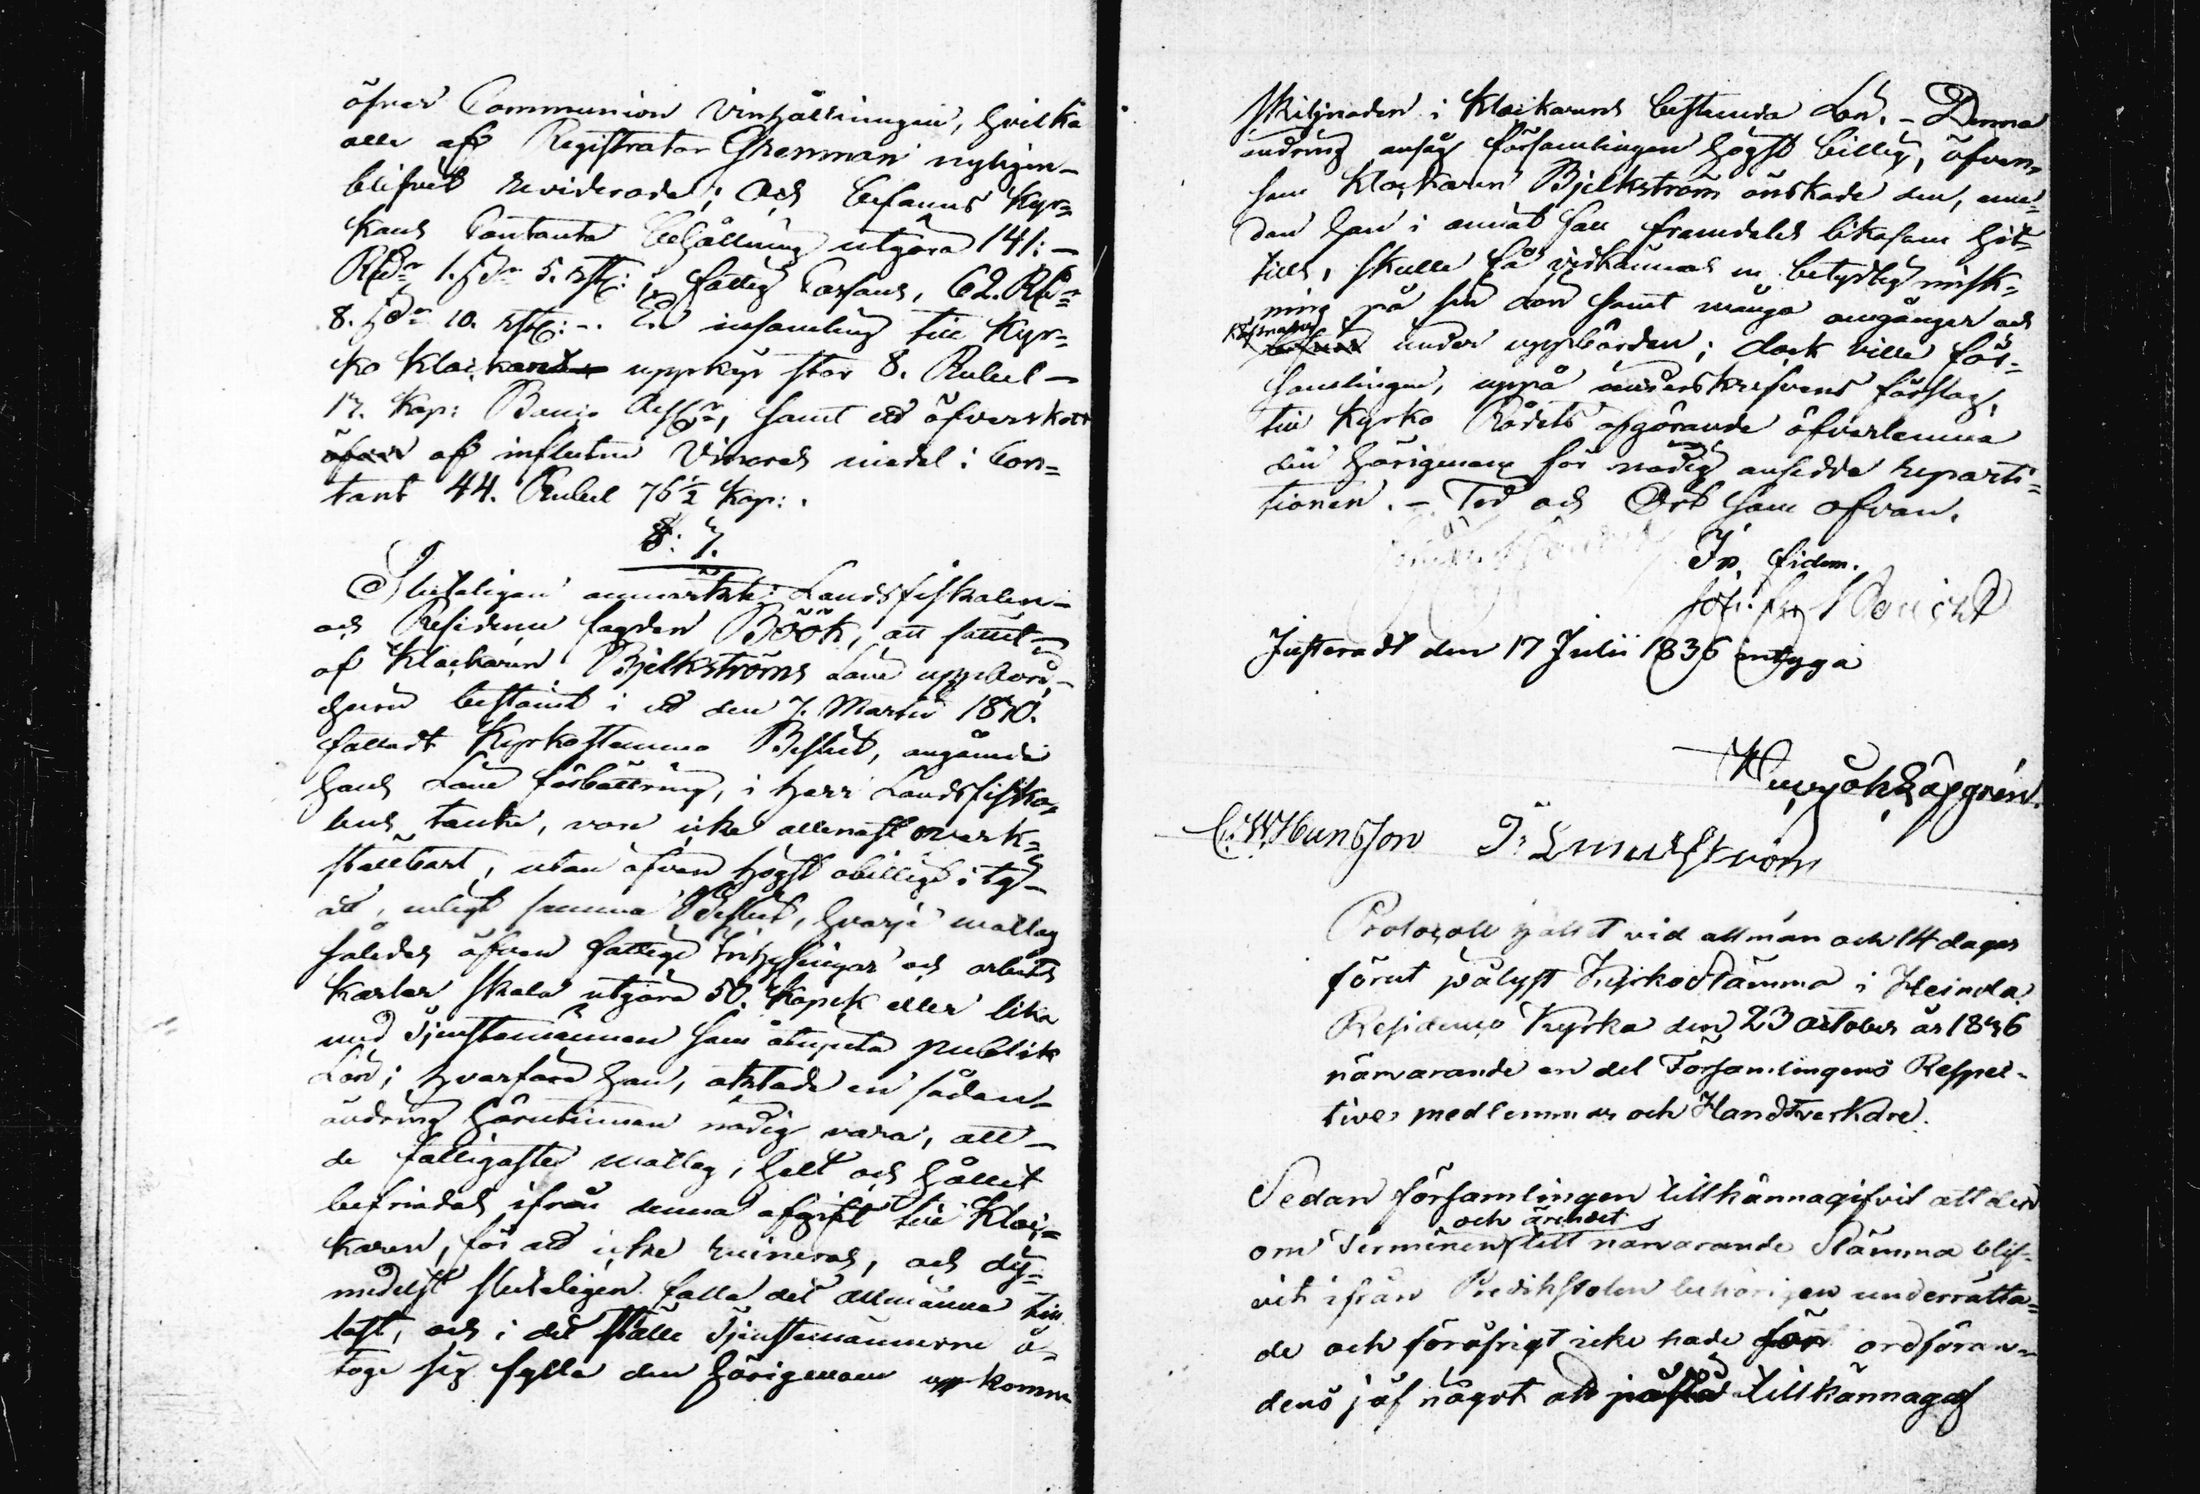 öfver Communion Vinhållningen, hvilka
alla af Registrator Grenman nyligen
blifvit reviderade; och befanns Kyr=
kans Contanta behållning utgöra 141:
1. 5. fattig Cassans, 62.
8. 10. En insamling till Kyr=
ko Klockan uppkom stor 8. Rubel
17. Kop: Banco Ass, samt ett öfverskott
af influtne Vinores medel: Con=
tant 44. Rubel 76½ Kop:.
§. 7.
Sluteligen anmärkte Landsfiskalen
och Residence fogden Böök, att sättet
af Klockaren Bjelkströms Löns uppbörd,
bestämt i ett den 7. Martii 1830.
fattadt Kyrkostämmo Beslut, angående
hans Löne förbättring, i Herr Landsfiska=
lens tanke, vore icke allenast overk=
ställbart, utan äfven högst obilligt; ty
att, enligt samma Beslut, hvarje matlag
således äfven fattige Inhysingar och arbets
karlar skola utgöra 50. Kopek eller lika
med Tjenstemännen som åtnjuta publik
Lön; hvarföre han, aktade en sådan
ändring häruti nödig vara, att
de fattigaste matlag, helt och hållit
befriades ifrån denna afgift till Kloc=
karen, för att icke ruineras, och dy=
medelst sluteligen falla det allmänna till
last, och i det ställe Tjenstemännerne å=
togo sig fylla den härigenom uppkomne
skilnaden i Klockarens bestämda Lön. – Denna
ändring ansåg Församlingen högst billig, äfven=
som Klockaren Bjelkström önskade den, eme=
dan han i annat fall framdeles likasom hit=
tills, skulle få vidkännas en betydlig minsk=
ning på sin lön samt många omgånger och
kostnader under uppbörden; dock ville för=
samlingen, uppå underskrefvens förslag,
till Kyrko Rådets afgörande öfverlemna
den härigenom för nödig ansedda reparti=
tionen. – Tid och Ort som ofvan.
In fidem.
Justeradt den 17 Julii 1836 intyga
C. W. Hansson
Protocoll hållit vid allmän och 14 dagar
förut pålyst Kyrkostämma i Heinola
Residence Kyrka den 23 october år 1836
närvarande en del Församlingens Respec=
tive medlemmar och Handtverkare.
Sedan församlingen tillkännagifvit att den
och ärendet
om Terminen till närvarande Stämma blif=
vit ifrån Predikstolen behörigen underrätta=
de och föröfrigt icke hade för ordföran=
dens jäf något att påstå tillkännagaf